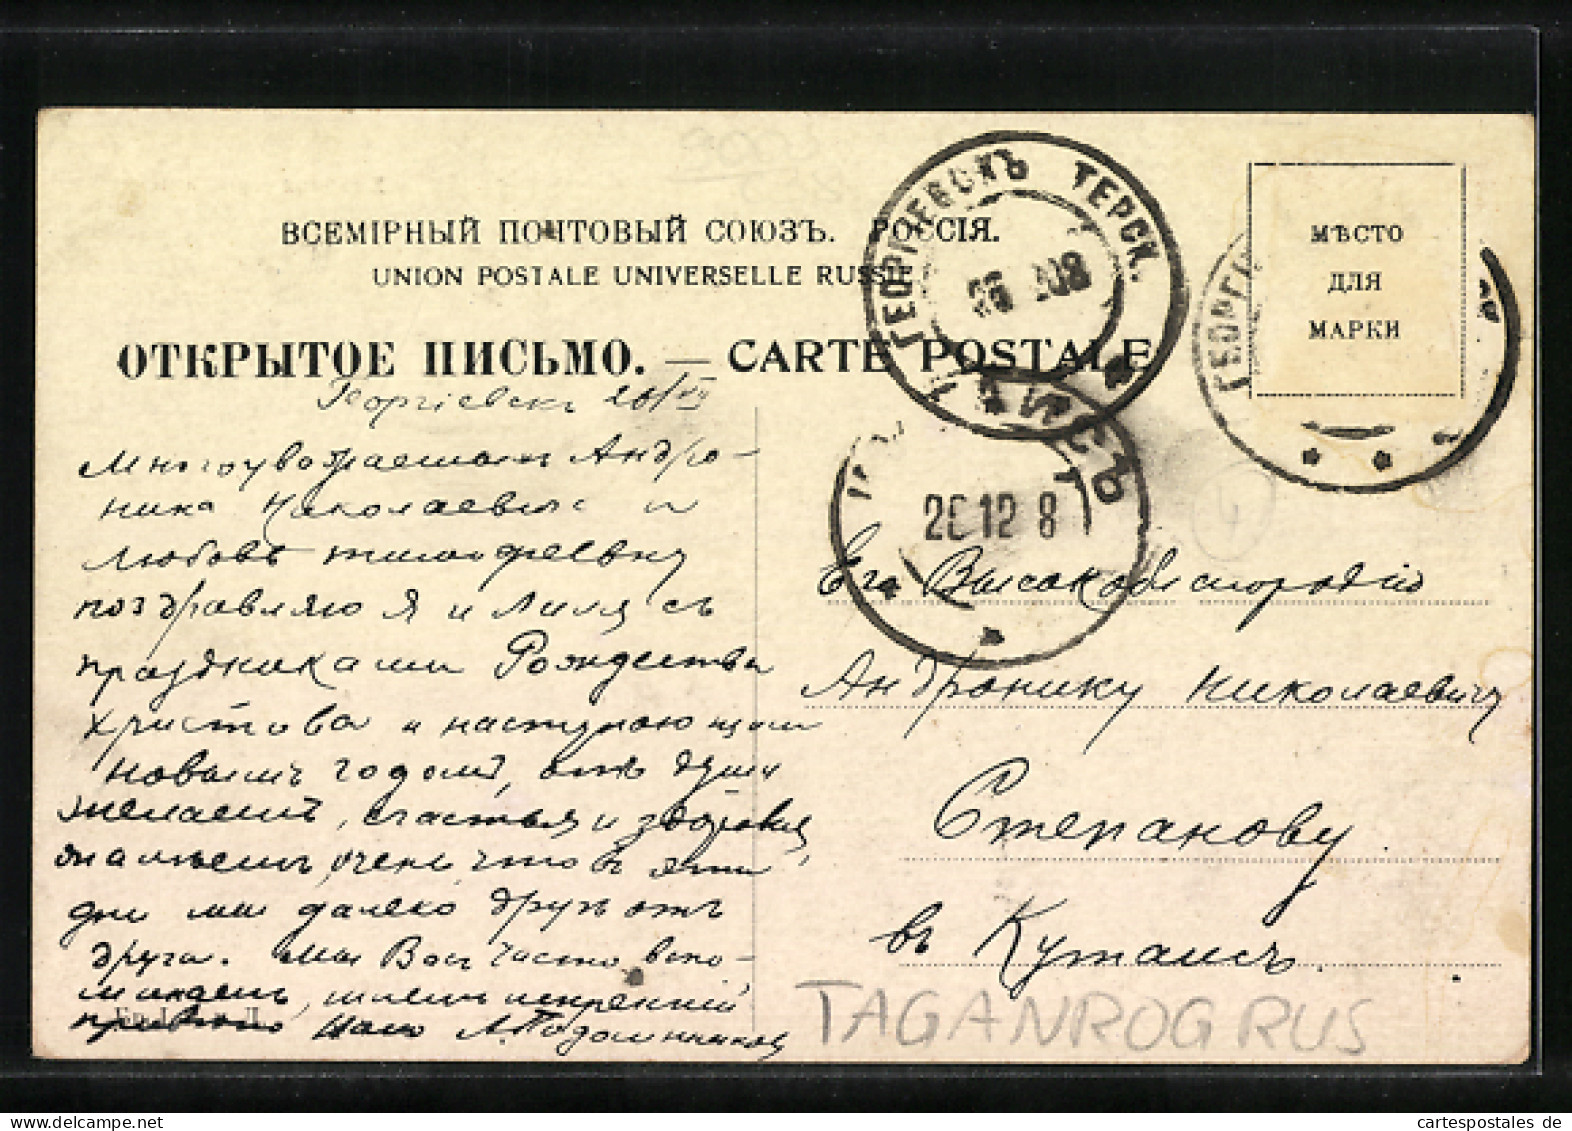 ВСЕМІРНЫЙ ПОЧТОВЫЙ СОЮЗЪ. РОССІЯ.
UNION POSTALE UNIVERSELLE RUSSIE
ОТКРЫТОЕ ПИСЬМО. — CARTE POSTALE
ГЕОРГІЕВСКЪ ТЕРСК.
МѢСТО
ДЛЯ
МАРКИ
ГЕОРГІ
26 12 8
Георгіевскъ 26/XII
Многоуважаемыхъ Андро-
ника Николаевича и
Любовь Тимофеевну
поздравляю я и Лиля съ
праздниками Рождества
Христова и наступающимъ
новымъ годомъ, отъ души
желаемъ, счастья и здоровья,
жалѣемъ, очень, что въ эти
дни мы далеко другъ отъ
друга. Мы Васъ часто вспо-
минаемъ, шлемъ искренній
привѣтъ Вамъ
Его Высокоблагородію
Андронику Николаевичу
Степанову
въ Кутаисъ.
TAGANROG RUS
cartespostales de